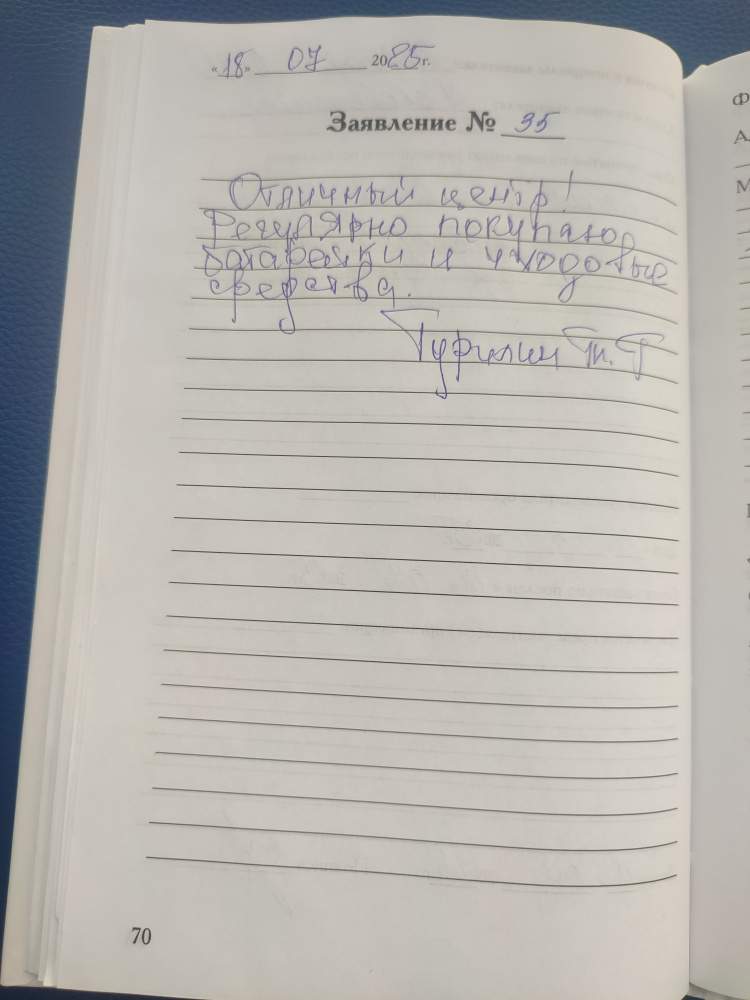 «18» 07 2025г.
Заявление № 35
Отличный центр!
Регулярно покупаю
батарейки и уходовые
средства.
Т.Г
70
Ф
А
М